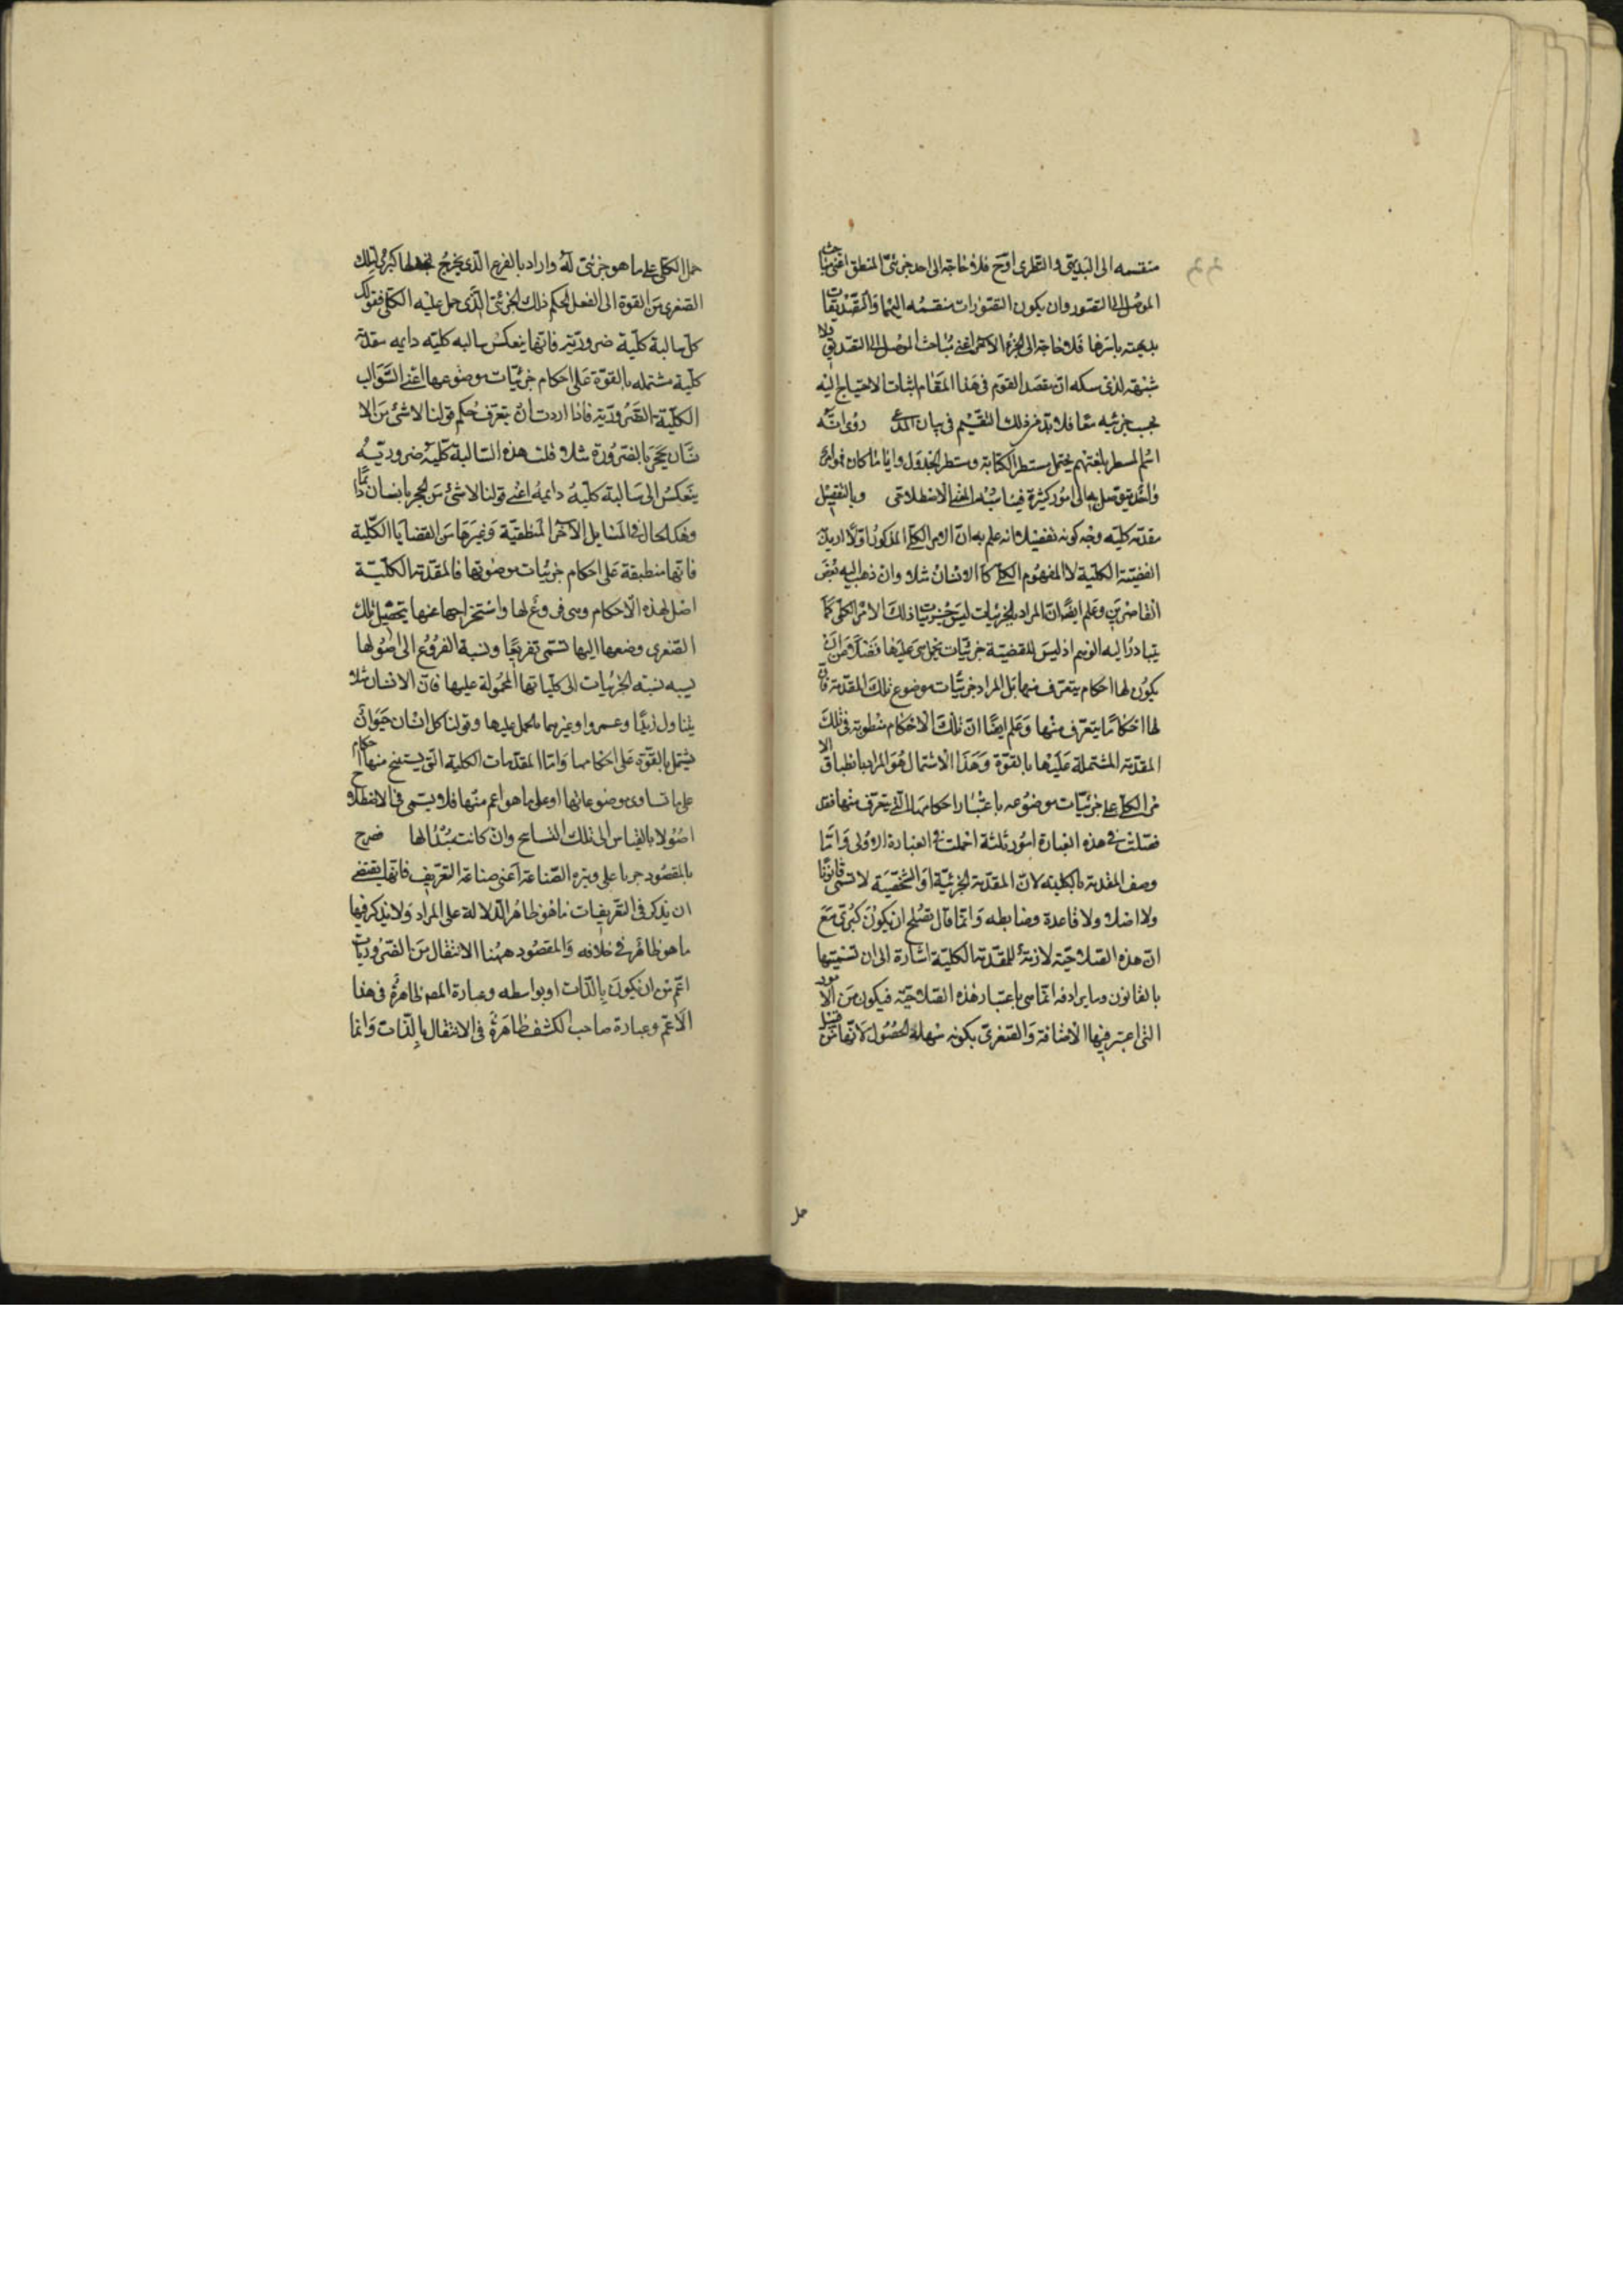 منقسمه الى البديهى والنظرى اوح فلا حاجة الى احد جزئى المنطق اعنى مباحث
الموصل الى التصور وان يكون التصورات منقسمه اليهما والتصديقات
بديهته باسرها فلا حاجة الى الجزء الاخر اعنى مباحث الموصل الى التصديق ولا
شبهة لذى مسكه ان مقصد القوم فى هذا المقام اثبات الاحتياج اليه
بجزئيه معا فلا بد من ذلك التقسيم فى بيان المدعى روى انه
اسم المسطر بلغتهم يحتمل مسطر الكتابة ومسطر الجدول واياما كان فهو امر
واحد يتوصل به الى امور كثيرة فيناسبه المعنى الاصطلاحى وبالتفصيل
مقدمة كليه وجه كونه تفصيلا انه علم به ان الامر الكلى المذكور اولا اريد به
القضية الكلية لا المفهوم الكلى كالانسان مثلا وان ذهب اليه بعض
القاصرين وعلم ايضا ان المراد بالجزئيات ليس جزئيات ذلك الامر الكلى كما
يتبادر اليه الوهم اذ ليس للقضية جزئيات تحمل هى عليها فضلا عن ان
يكون لها احكام يتعرف منها بل المراد جزئيات موضوع تلك المقدمة فان
لها احكاما يتعرف منها وعلم ايضا ان تلك الاحكام منطوية فى تلك
المقدمة المشتملة عليها بالقوة وهذا الاشتمال هو المراد بانطباق الا
مر الكلى على جزئيات موضوعه باعتبار احكامها التى يتعرف منها فقد
فصلت فى هذه العبارة امور ثلثة اجملت فى العبارة الاولى وانما
وصف المقدمة بالكلية لان المقدمة الجزئية او الشخصية لا تسمى قانونا
ولا اصلا ولا قاعدة وضابطه وانما قال تصلح ان يكون كبرى مع
ان هذه الصلاحية لازمة للمقدمة الكلية اشارة الى ان تسميتها
بالقانون وما يرادفه انما هى باعتبار هذه الصلاحية فيكون من الامور
التى اعتبر فيها الاضافة والصغرى بكونه سهلة الحصول لانها من قبيل
حل
حمل الكلى على ما هو جزئى له واراد بالفرع الذى يخرج بجعلها كبرى لتلك
الصغرى من القوة الى الفعل الحكم ذلك الجزئى الذى حمل عليه الكلى فقولك
كل سالبة كلية ضرورية فانها ينعكس سالبه كليه دايمه مقدمة
كلية مشتمله بالقوة على احكام جزئيات موضوعها اعنى السوالب
الكلية الضرورية فاذا اردت ان يتعرف حكم قولنا لا شئ من الا
نسان بحجر بالضرورة مثلا قلت هذه السالبة كلية ضرورية
ينعكس الى سالبة كلية دايمه اعنى قولنا لا شئ من الحجر بانسان دائما
وهكذا الحال فى المسايل الاخر المنطقية وغيرها من القضايا الكلية
فانها منطبقة على احكام جزئيات موضوعها فالمقدمة الكلية
اصل لهذه الاحكام وهى فروع لها واستخراجها عنها بتحصيل تلك
الصغرى وضمها اليها تسمى تفريعا ونسبة الفروع الى اصولها
يشبه نسبة الجزئيات الى كلياتها المحمولة عليها فان الانسان مثلا
يتناول زيدا وعمروا وغيرهما بالحمل عليها وقولنا كل انسان حيوان
يشتمل بالقوة على احكامها واما المقدمات الكلية التى يستنتج منها احكام
على ما تساوى موضوعاتها او على ما هو اعم منها فلا يسمى فى الاصطلاح
اصولا بالقياس الى تلك النتايج وان كانت مبدا لها صرح
بالمقصود جريا على وتيرة الصناعة اعنى صناعة التعريف فانها يقتضى
ان يذكر فى التعريفات ما هو ظاهر الدلالة على المراد ولا يذكر فيها
ما هو ظاهر فى خلافه والمقصود ههنا الانتقال من الضروريات
اعم من ان يكون بالذات او بواسطه وعبارة المص ظاهرة فى هذا
الاعم وعبارة صاحب الكشف ظاهرة فى الانتقال بالذات وانما